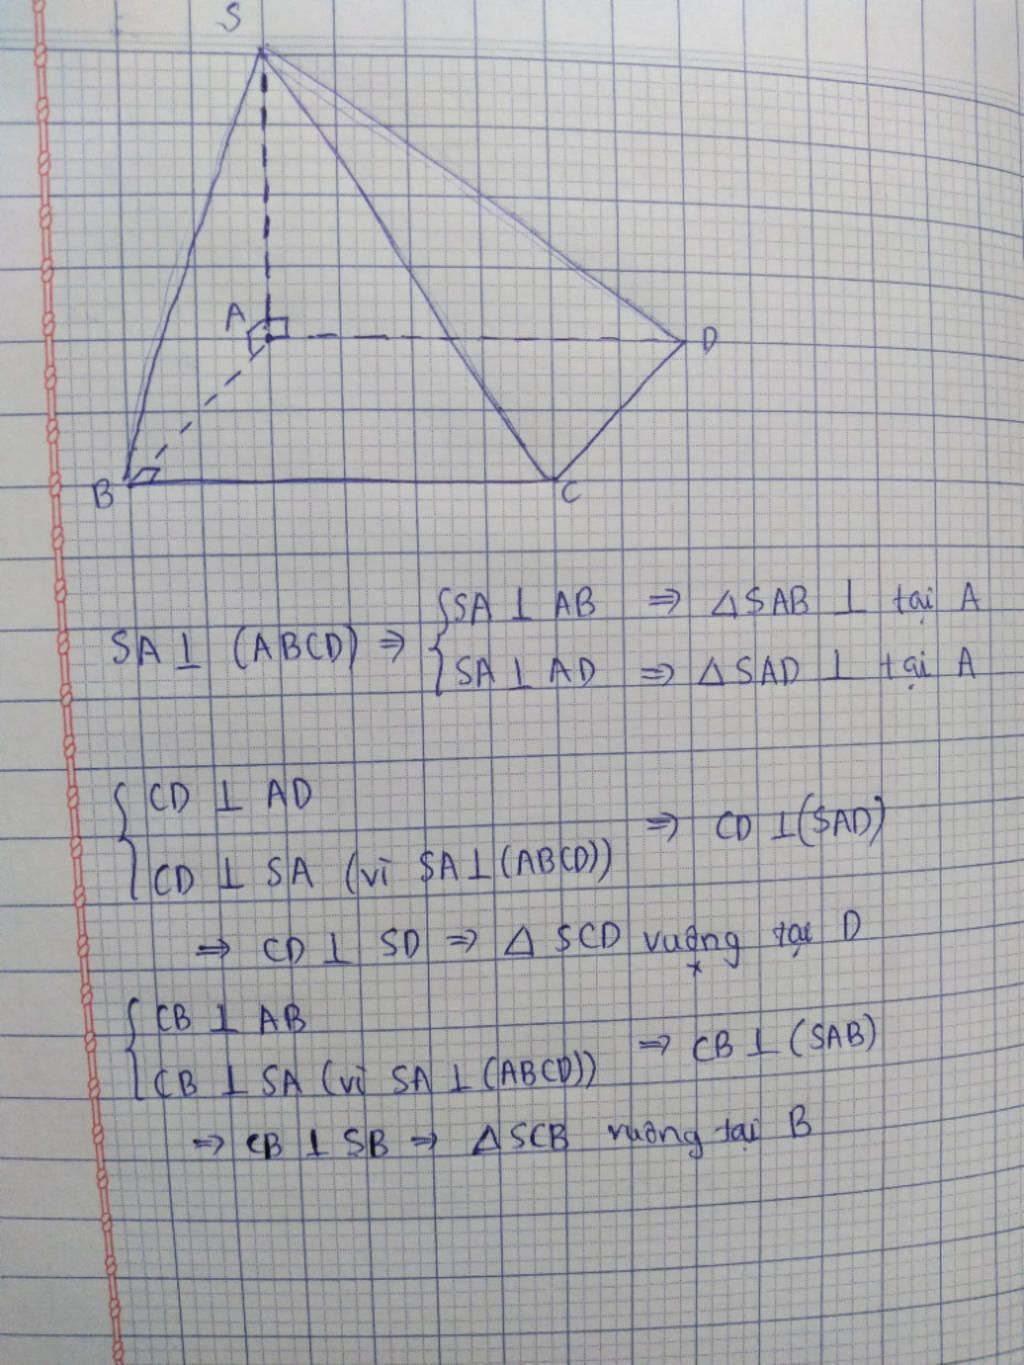 S
A
D
B
C
SA ⊥ (ABCD) ⇒ { SA ⊥ AB ⇒ ΔSAB ⊥ tại A
SA ⊥ AD ⇒ ΔSAD ⊥ tại A
{ CD ⊥ AD
CD ⊥ SA (vì SA ⊥ (ABCD)) ⇒ CD ⊥ (SAD)
⇒ CD ⊥ SD ⇒ Δ SCD vuông tại D
{ CB ⊥ AB
CB ⊥ SA (vì SA ⊥ (ABCD)) ⇒ CB ⊥ (SAB)
⇒ CB ⊥ SB ⇒ ΔSCB vuông tại B